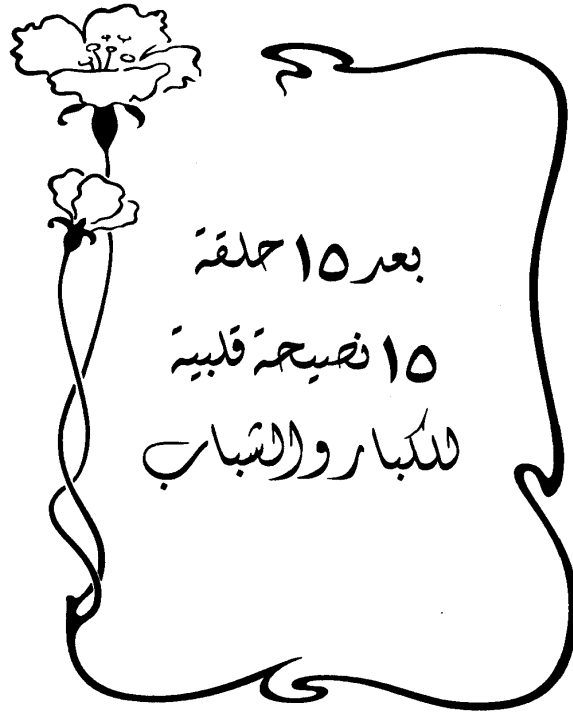 بعد ١٥ حلقة
١٥ نصيحة قلبية
للكبار والشباب